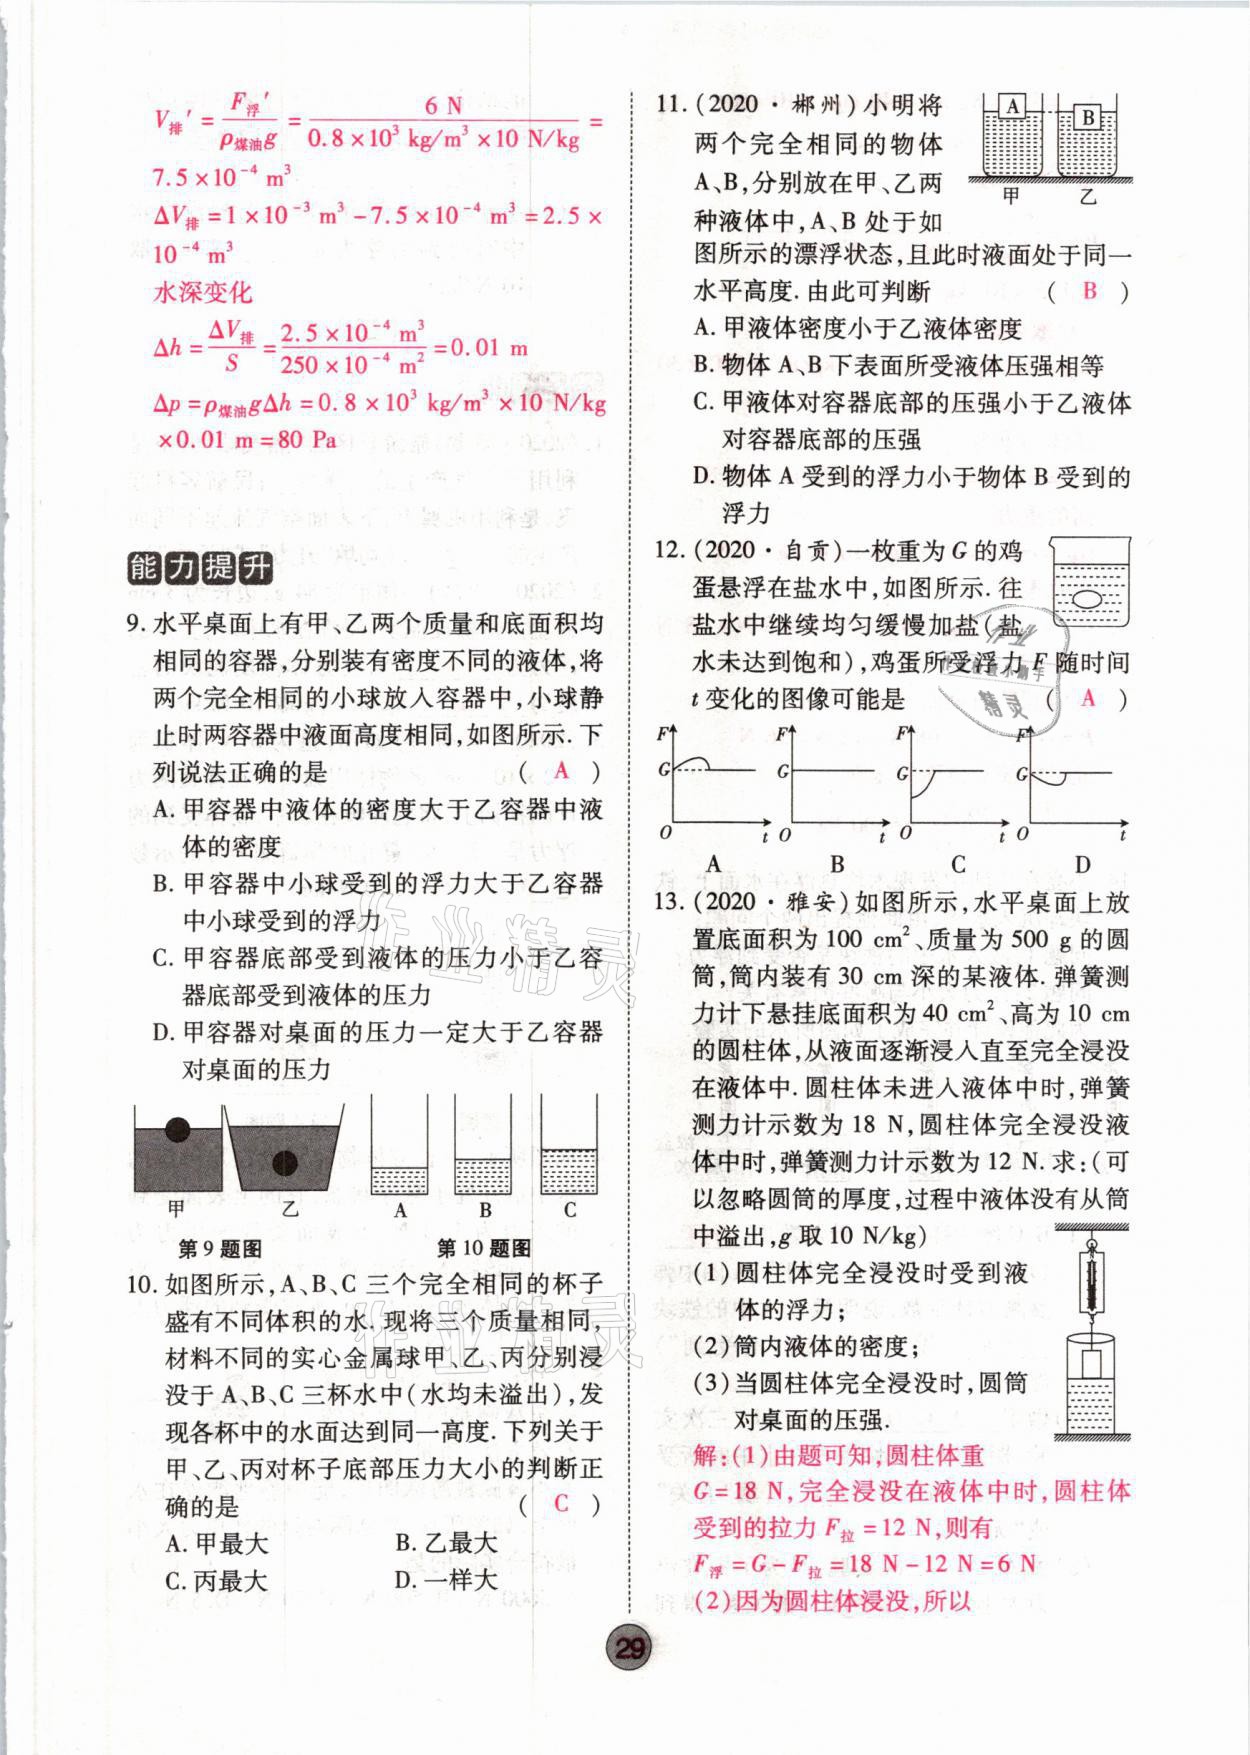 V排′ = F浮′/(ρ煤油g) = 6 N/(0.8×10³ kg/m³×10 N/kg) =
7.5×10⁻⁴ m³
ΔV排=1×10⁻³ m³-7.5×10⁻⁴ m³=2.5×
10⁻⁴ m³
水深变化
Δh=ΔV排/S=(2.5×10⁻⁴ m³)/(250×10⁻⁴ m²)=0.01 m
Δp=ρ煤油gΔh=0.8×10³ kg/m³×10 N/kg
×0.01 m=80 Pa
能力提升
9. 水平桌面上有甲、乙两个质量和底面积均
相同的容器,分别装有密度不同的液体,将
两个完全相同的小球放入容器中,小球静
止时两容器中液面高度相同,如图所示. 下
列说法正确的是 ( A )
A. 甲容器中液体的密度大于乙容器中液
体的密度
B. 甲容器中小球受到的浮力大于乙容器
中小球受到的浮力
C. 甲容器底部受到液体的压力小于乙容
器底部受到液体的压力
D. 甲容器对桌面的压力一定大于乙容器
对桌面的压力
甲 乙 A B C
第9题图 第10题图
10. 如图所示,A、B、C 三个完全相同的杯子
盛有不同体积的水. 现将三个质量相同,
材料不同的实心金属球甲、乙、丙分别浸
没于 A、B、C 三杯水中(水均未溢出),发
现各杯中的水面达到同一高度. 下列关于
甲、乙、丙对杯子底部压力大小的判断正
确的是 ( C )
A. 甲最大 B. 乙最大
C. 丙最大 D. 一样大
11. (2020·郴州)小明将
两个完全相同的物体
A、B,分别放在甲、乙两
种液体中,A、B 处于如
图所示的漂浮状态,且此时液面处于同一
水平高度. 由此可判断 ( B )
A B
甲 乙
A. 甲液体密度小于乙液体密度
B. 物体 A、B 下表面所受液体压强相等
C. 甲液体对容器底部的压强小于乙液体
对容器底部的压强
D. 物体 A 受到的浮力小于物体 B 受到的
浮力
12. (2020·自贡)一枚重为 G 的鸡
蛋悬浮在盐水中,如图所示. 往
盐水中继续均匀缓慢加盐(盐
水未达到饱和),鸡蛋所受浮力 F 随时间
t 变化的图像可能是 ( A )
F F F F
G G G G
O t O t O t O t
A B C D
13. (2020·雅安)如图所示,水平桌面上放
置底面积为 100 cm²、质量为 500 g 的圆
筒,筒内装有 30 cm 深的某液体. 弹簧测
力计下悬挂底面积为 40 cm²、高为 10 cm
的圆柱体,从液面逐渐浸入直至完全浸没
在液体中. 圆柱体未进入液体中时,弹簧
测力计示数为 18 N,圆柱体完全浸没液
体中时,弹簧测力计示数为 12 N. 求:(可
以忽略圆筒的厚度,过程中液体没有从筒
中溢出,g 取 10 N/kg)
(1)圆柱体完全浸没时受到液
体的浮力;
(2)筒内液体的密度;
(3)当圆柱体完全浸没时,圆筒
对桌面的压强.
解:(1)由题可知,圆柱体重
G=18 N,完全浸没在液体中时,圆柱体
受到的拉力 F拉=12 N,则有
F浮=G-F拉=18 N-12 N=6 N
(2)因为圆柱体浸没,所以
29
作业精灵
作业精灵
作业
精灵